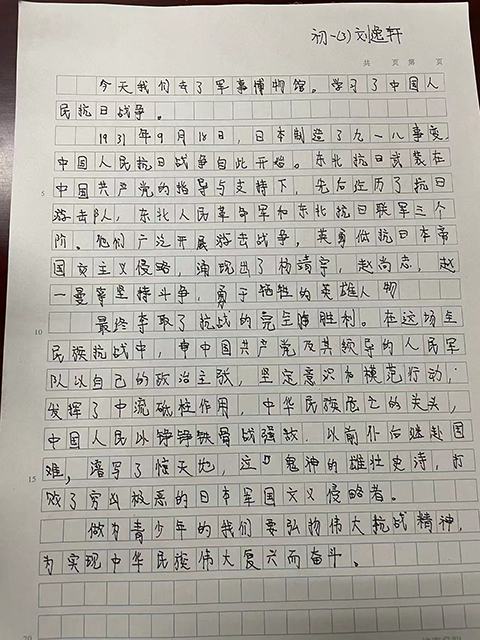 初一(3) 刘逸轩
共 页 第 页
今天我们去了军事博物馆。学习了中国人
民抗日战争。
1931年9月18日，日本制造了九一八事变
中国人民抗日战争自此开始。东北抗日武装在
5 中国共产党的指导与支持下，先后经历了抗日
游击队，东北人民革命军和东北抗日联军三个
阶。他们广泛开展游击战争，英勇抵抗日本帝
国主义侵略，涌现出了杨靖宇，赵尚志，赵
一曼等坚持斗争，勇于牺牲的英雄人物
10 最终夺取了抗战的完全胜利。在这场
民族抗战中，中国共产党及其领导的人民军
队以自己的政治主张，坚定意识和模范行动，
发挥了中流砥柱作用，中华民族危亡的关头，
中国人民以铮铮铁骨战强敌，以前仆后继赴国
15 难，谱写了惊天地，泣鬼神的雄壮史诗，打
败了穷凶极恶的日本军国主义侵略者。
做为青少年的我们要弘扬伟大抗战精神，
为实现中华民族伟大复兴而奋斗。
20